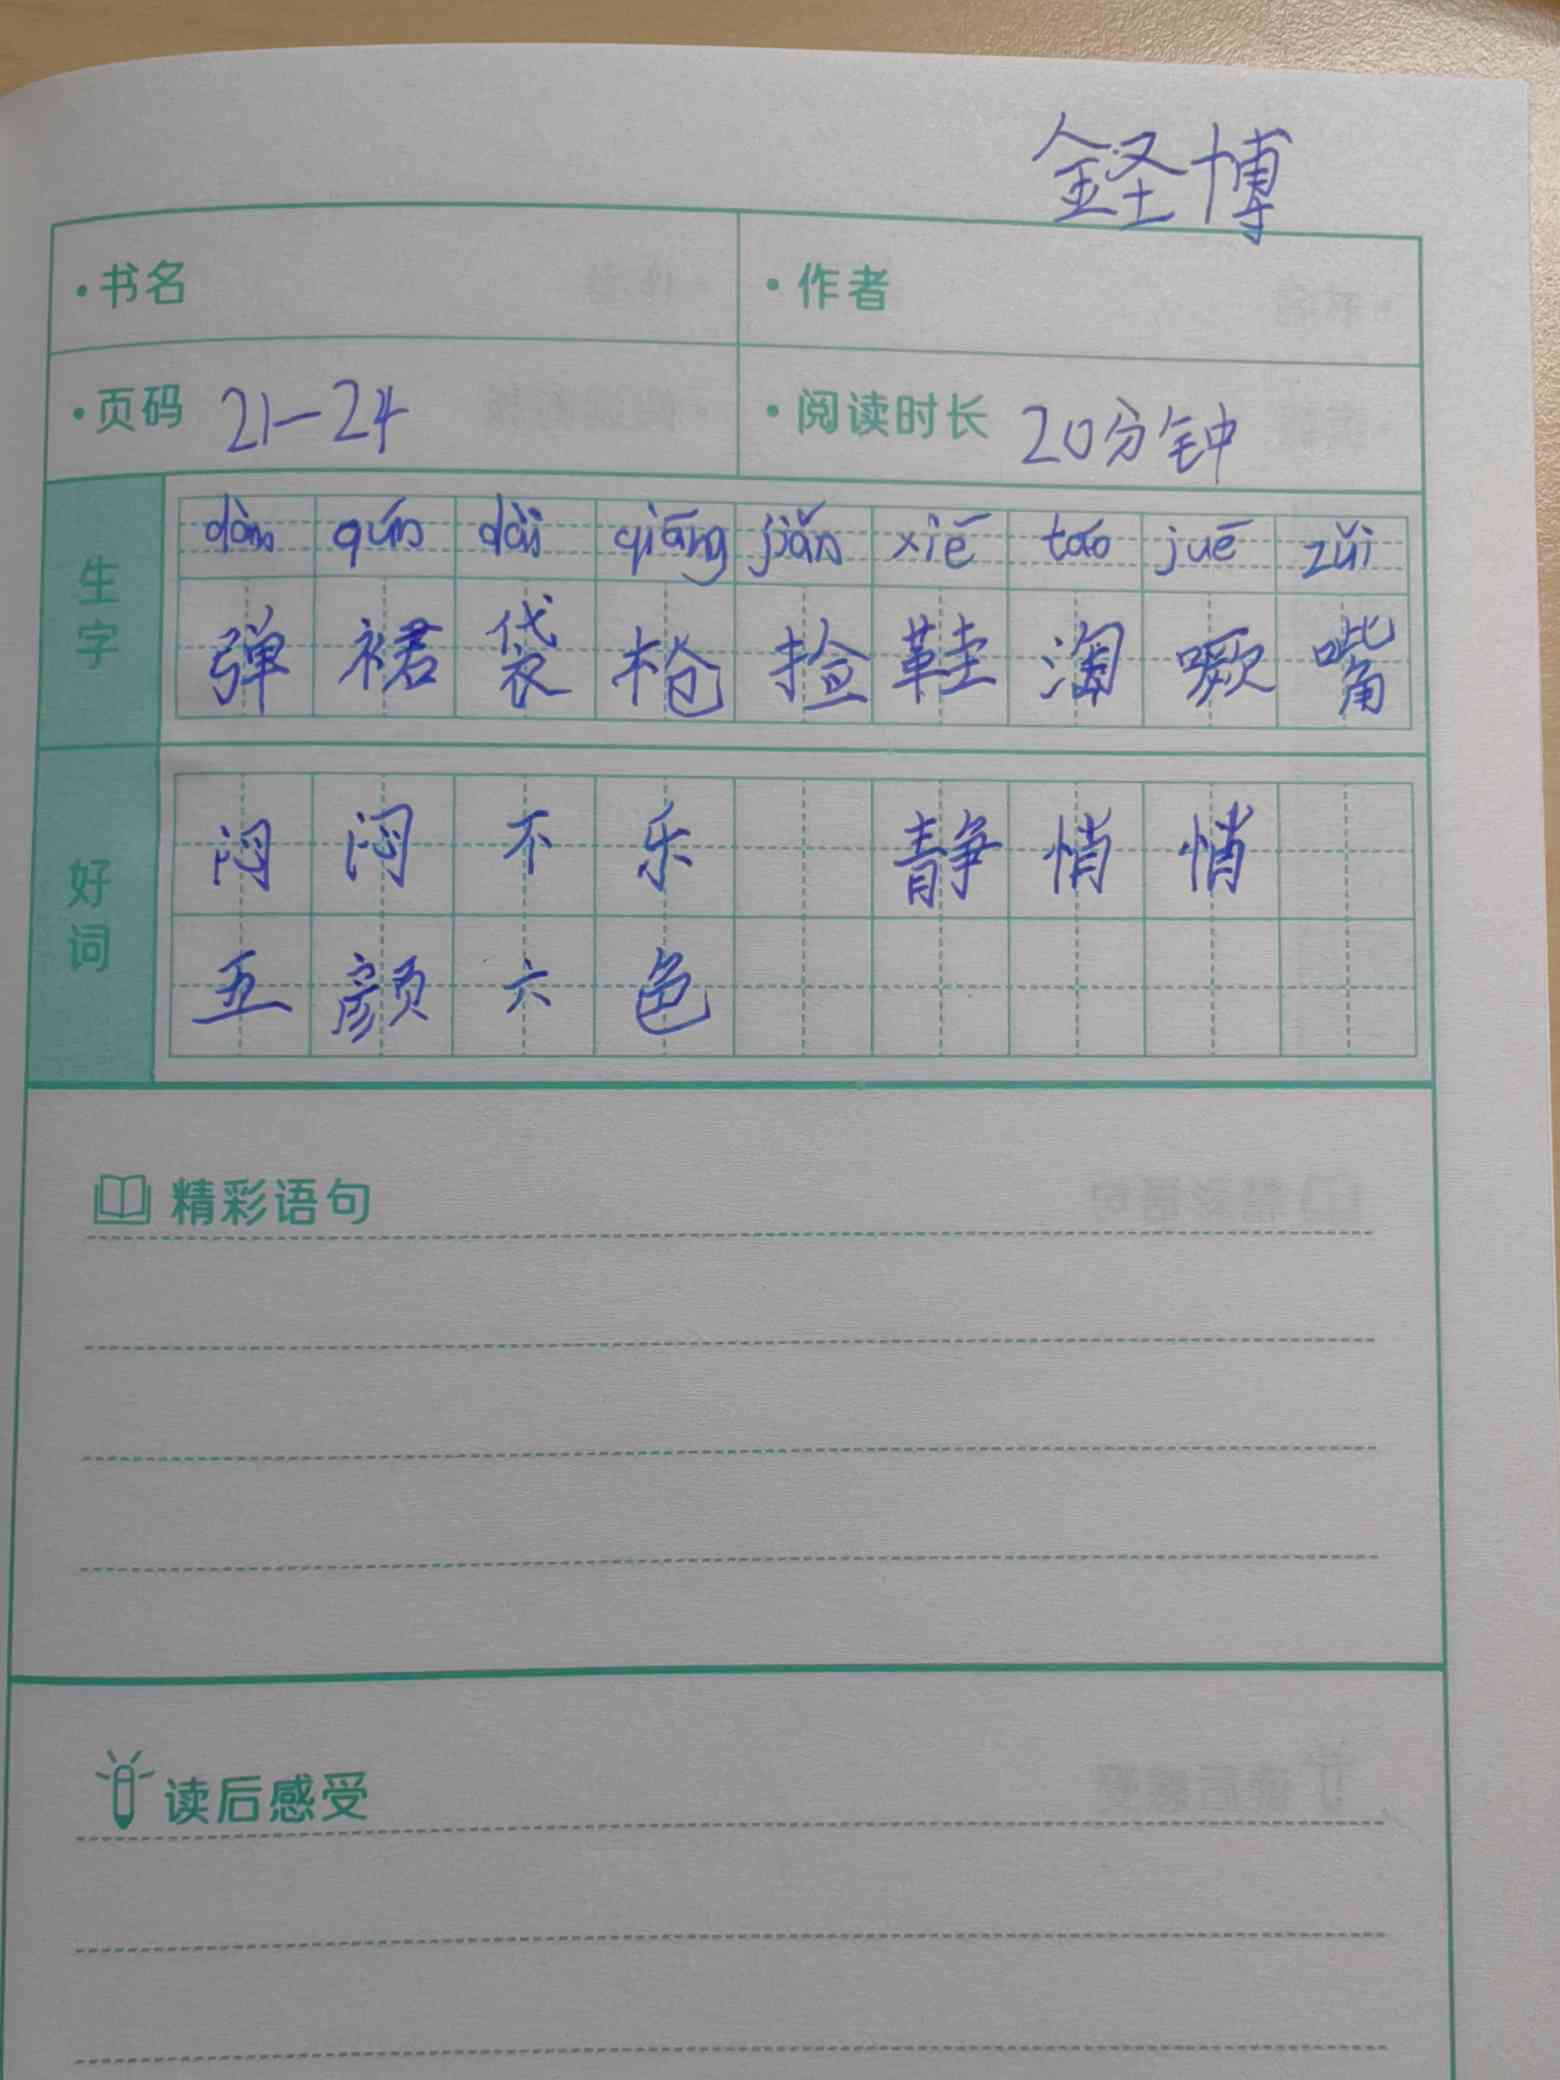 鉴博
·书名 ·作者
·页码 21—24 ·阅读时长 20分钟
dàn qún dài qiāng jiǎn xiē táo juē zuǐ
生字 弹 裙 袋 枪 捡 鞋 淘 噘 嘴
好词 闷闷不乐 静悄悄
五颜六色
精彩语句
读后感受